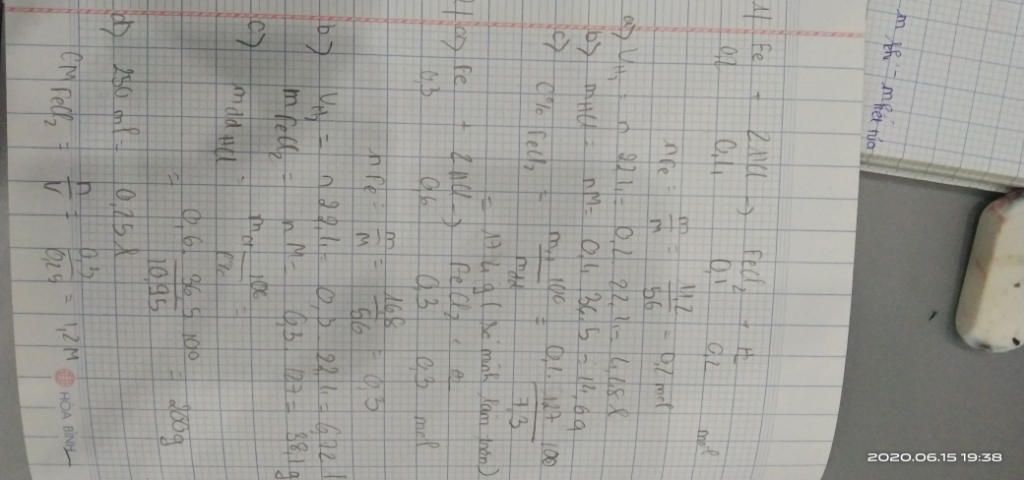 1) Fe + 2HCl → FeCl2 + H2
0,2 0,1 0,1 0,2 mol
nFe = m/M = 11,2/56 = 0,2 mol
a) VH2 = n 22,4 = 0,2 22,4 = 4,48 l
b) mHCl = nM = 0,4 36,5 = 14,6g
c) C% FeCl2 = mct/mdd 100 = 0,1.127/7,3 100
= 174 g (Số mình làm tròn)
2) a) Fe + 2HCl → FeCl2 +
0,3 0,6 0,3 0,3 mol
nFe = m/M = 16,8/56 = 0,3
b) VH2 = n 22,4 = 0,3 22,4 = 6,72 l
mFeCl2 = n M = 0,3 127 = 38,1g
c) mdd HCl = mct/C% 100 =
= 0,6.36,5/10,95 100 = 200g
d) 250 ml = 0,25 l
CM FeCl2 = n/V = 0,3/0,25 = 1,2M
HÒA BÌNH
m = m kết tủa
2020.06.15 19:38